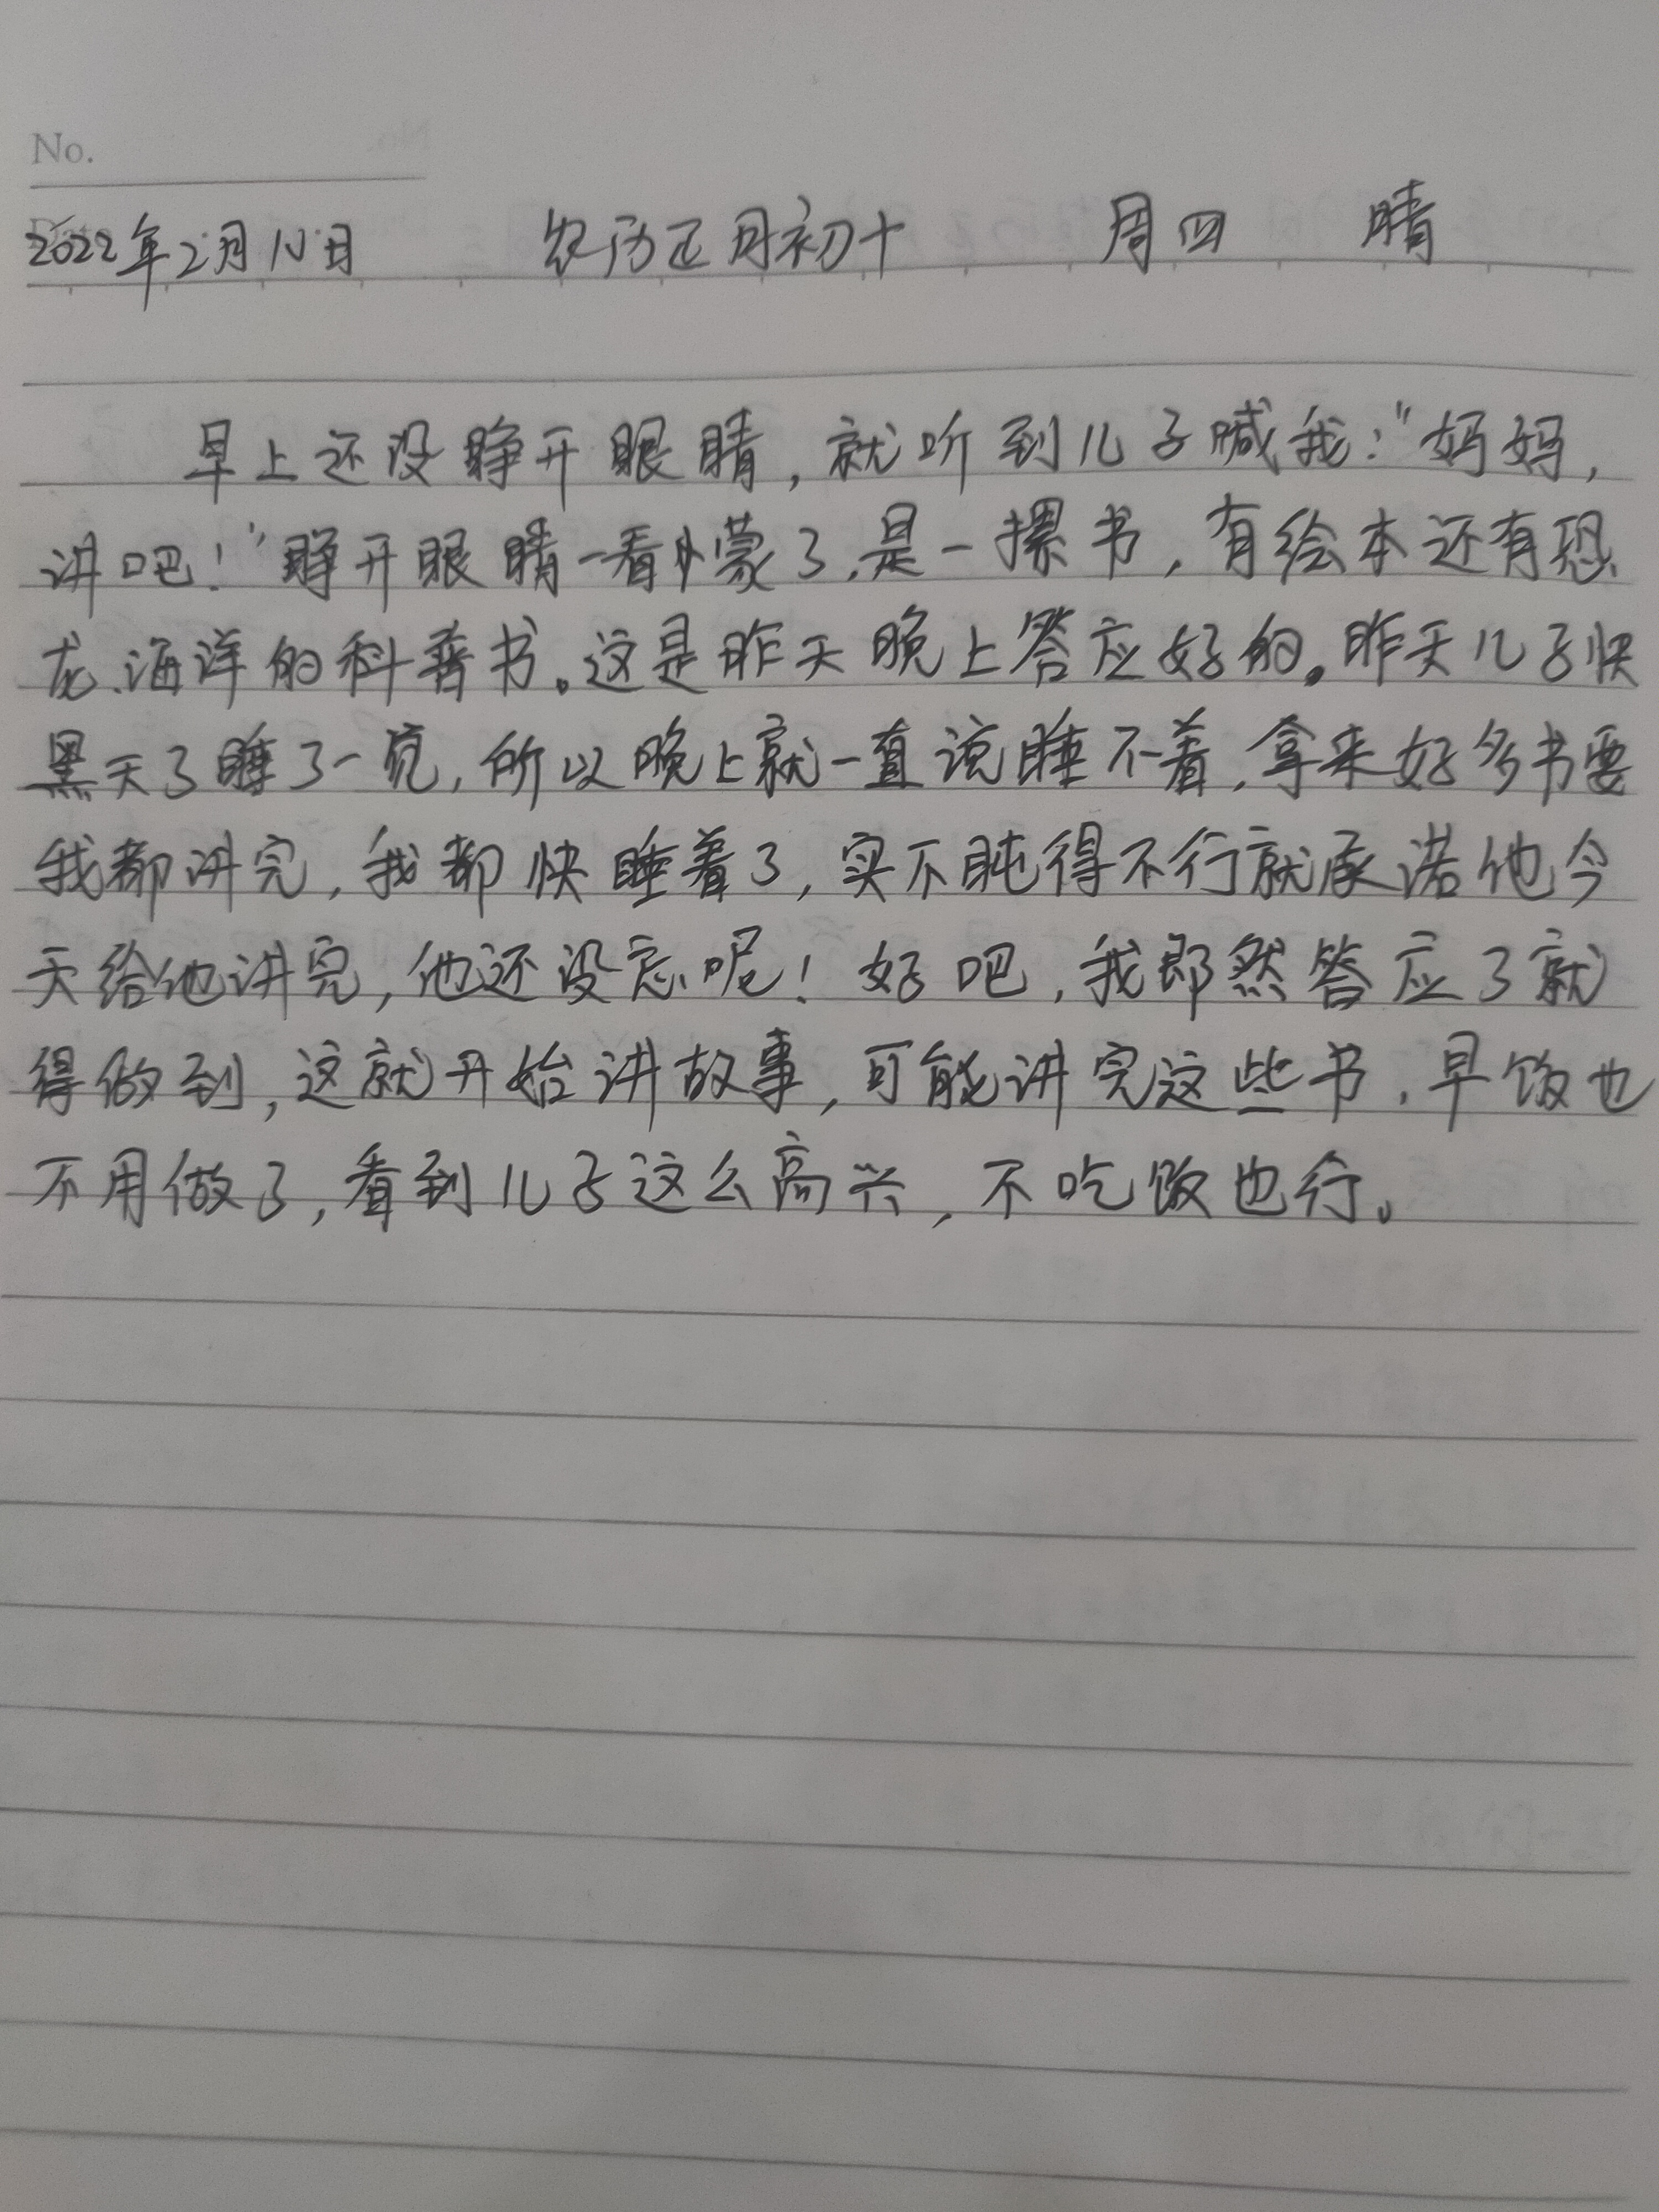 No.
2022年2月10日 农历正月初十 周四 晴
早上还没睁开眼睛，就听到儿子喊我：“妈妈，
讲吧！”睁开眼睛一看懞了，是一摞书，有绘本还有恐
龙、海洋的科普书。这是昨天晚上答应好的。昨天儿子快
黑天了睡了一觉，所以晚上就一直说睡不着，拿来好多书要
我都讲完，我都快睡着了，实不盹得不行就承诺他今
天给他讲完，他还没忘呢！好吧，我即然答应了就
得做到，这就开始讲故事，可能讲完这些书，早饭也
不用做了，看到儿子这么高兴，不吃饭也行。